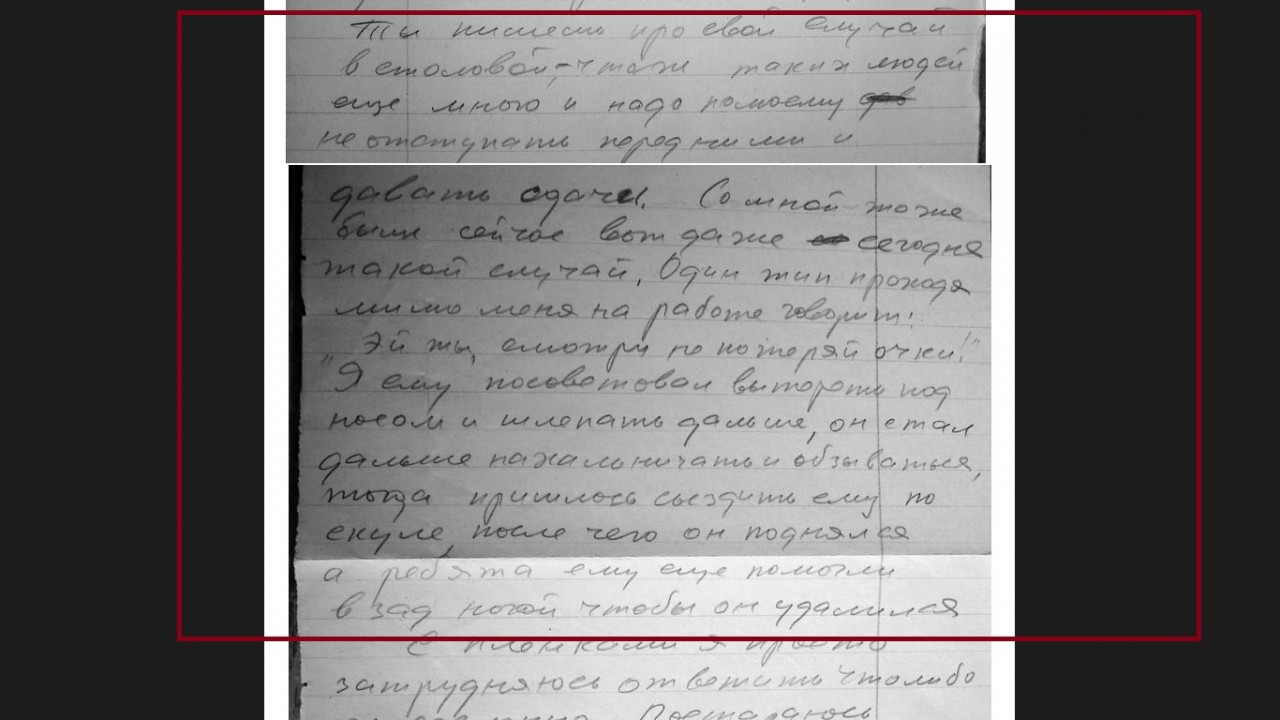 Ты пишешь про свой случай
в столовой, - что ж таких людей
еще много и надо помоему
не отступать перед ними и
давать сдачи. Со мной тоже
был сейчас вот даже сегодня
такой случай. Один тип проходя
мимо меня на работе говорит:
„Эй ты, смотри не потеряй очки!"
Я ему посоветовал вытереть под
носом и шлепать дальше, он стал
дальше нахальничать и обзываться,
тогда пришлось съездить ему по
скуле, после чего он поднялся
а ребята ему еще помогли
в зад ногой чтобы он удалился
С пленками я просто
затрудняюсь ответить что либо
Постараюсь